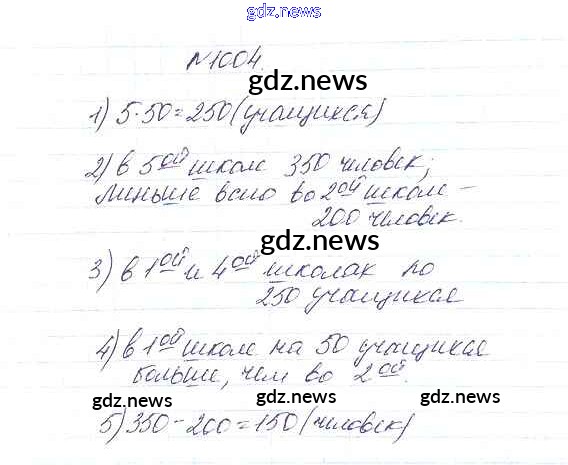 gdz.news
N1004.
gdz.news
1) 5·50=250 (учащихся)
2) в 5ой школе 350 человек;
Меньше всего во 2ой школе –
200 человек.
gdz.news
3) в 1ой и 4ой школах по
250 учащихся
4) в 1ой школе на 50 учащихся
больше, чем во 2ой.
gdz.news gdz.news gdz.news
5) 350-200=150 (человек)